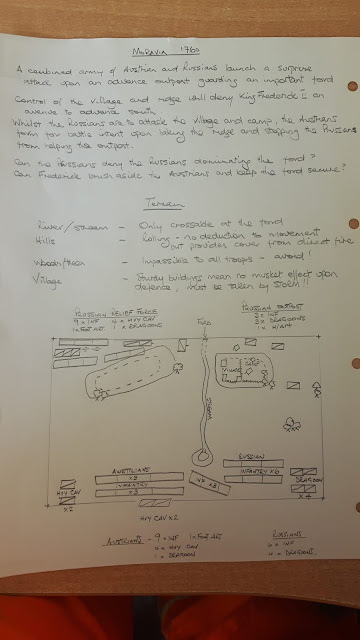 MORAVIA 1760
A combined army of Austrian and Russians launch a surprise
attack upon an advance outpost guarding an important ford
Control of the village and ridge will deny King Frederick II an
avenue to advance south.
Whilst the Russians are to attack the village and camp, the Austrians
form for battle intent upon taking the ridge and stopping the Prussians
from helping the outpost.
Can the Prussians deny the Russians dominating the ford?
Can Frederick brush aside the Austrians and keep the ford secure?
Terrain
River/stream - Only crossable at the ford
Hills - Rolling - no deduction to movement
but provides cover from direct fire
Woods/trees - Impassible to all troops - avoid!
Village - Sturdy buildings mean no musket effect upon
defence, must be taken by STORM!!
PRUSSIAN RELIEF FORCE
9 x INF 4 x HVY CAV
1x FOOT ART 1 x DRAGOONS
FORD
PRUSSIAN OUTPOST
3 x INF
2x DRAGOONS
1 x H/ART
STREAM
AUSTRIANS
x 3
INFANTRY
x 3
INF x 3
RUSSIAN
INFANTRY x 6
HVY CAV
x 2
DRAGOON
x 4
HVY CAV x 2
AUSTRIANS - 9 x INF 1x FOOT ART
4 x HVY CAV
1 x DRAGOON
RUSSIANS
6 x INF
4 x DRAGOONS